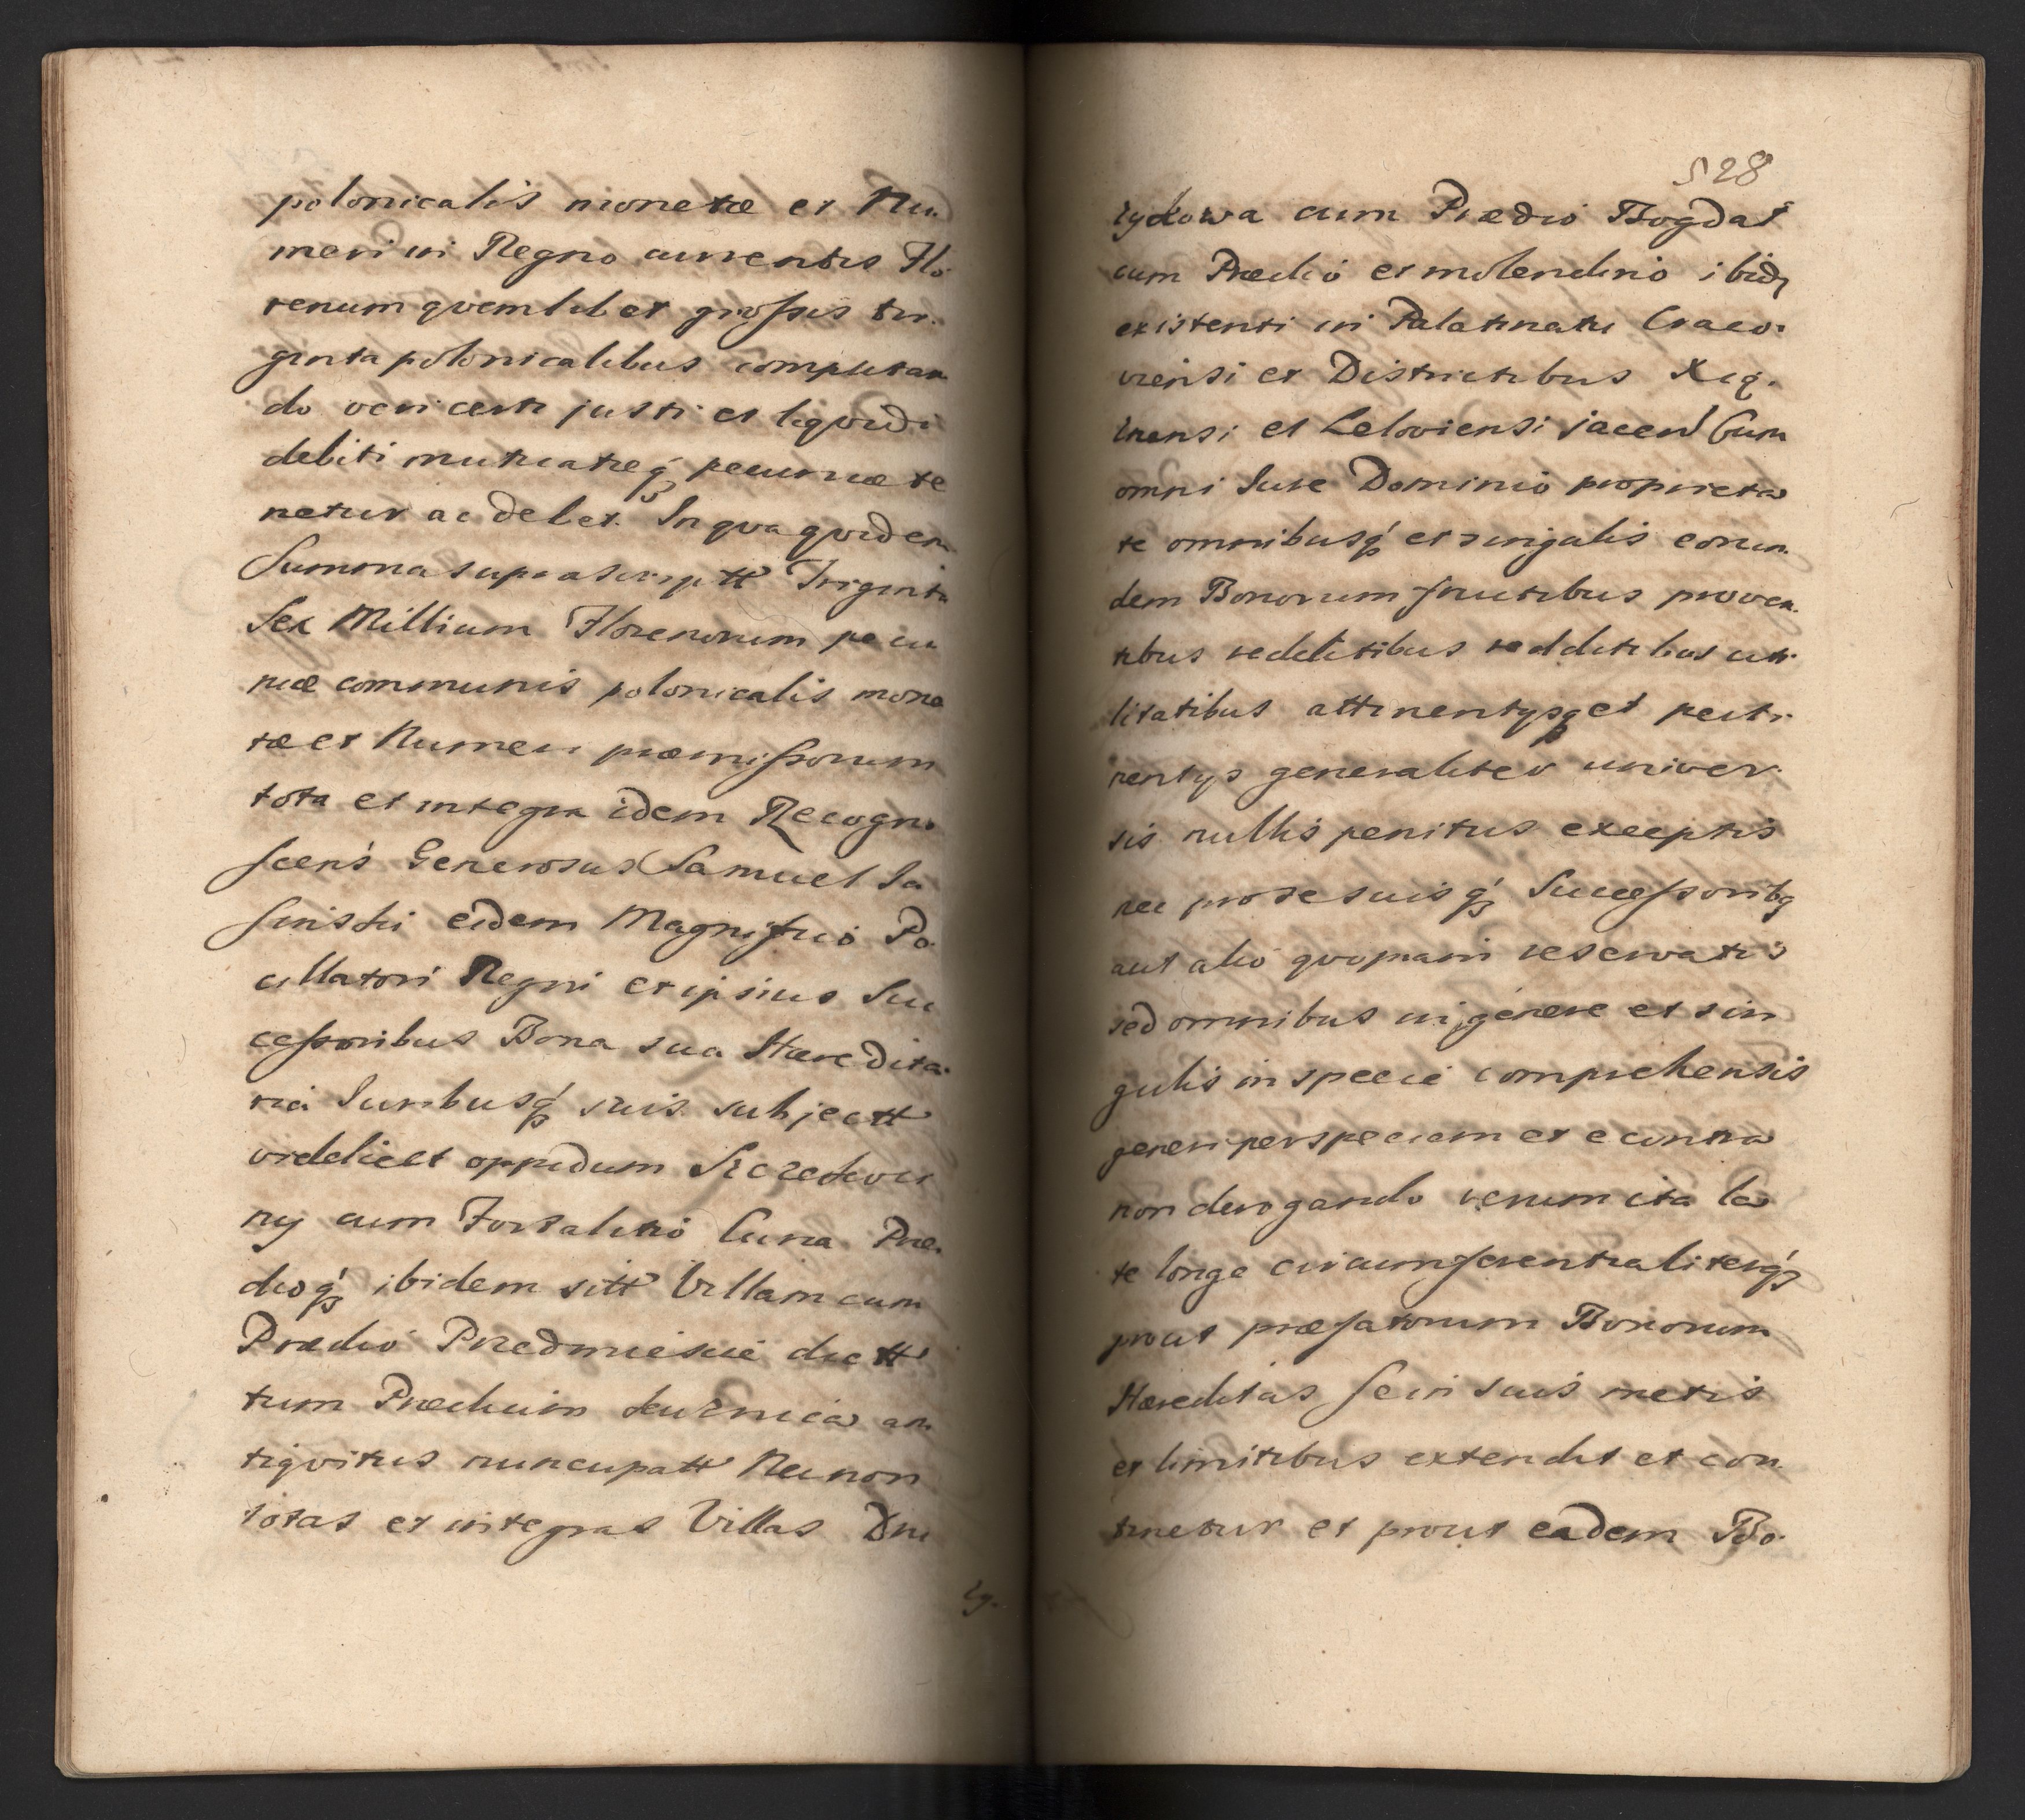 polonicalis monetæ et Nu-
meri in Regno currentis Flo-
renum qvemlibet grossis tri-
ginta polonicalibus computan
do veri certi justi et liqvidi
debiti mutuatæq́ pecuniæ te
netur ac debet. In qva qvidem
Summa suprascriptt Triginta
Sex Millium Florenorum pecu
niæ communis polonicalis mone
tæ et Numeri præmissorum
tota et integra idem Recogno
scens Generosus Samuel Ja
sinski eidem Magnifico Po-
cillatori Regni et ipsius Suc
cessoribus Bona sua Hæredita-
ria Juribusq́ suis subjectt
videlicet oppidum Szczekoci
ny cum Fortalitio Curia Præ-
dioq́ ibidem sitt Villam cum
Prædio Przedmieście dictt
tum Prædium Kuźnica an
tiqvitus nuncupatt Necnon
totas et integras Villas Dni
ły.
528
rydowa cum Prædio Bogdał
cum Prædio et molendino ibidq
existenti in Palatinatu Craco-
viensi et Districtibus Xiq-
lnensi et Leloviensi jacen Cum
omni Jure Dominio proprieta
te omnibusq́ et singulis eorun
dem Bonorum fructibus proven-
tibus redditibus redditibus uti-
litatibus attinentijsq et perti-
nentijs generaliter univer-
sis nullis penitus exceptis
nec pro se suisq́ Successoribq
aut alio qvopiam reservatis
sed omnibus in genere et sin
gulis in specie comprehensis
generi per speciem et e contra
non derogando verum ita la
te longe circumferentialiterq́
prout præfatorum Bonorum
Hæreditas se in suis metis
et limitibus extendit et con
tinetur et prout eadem Bo-